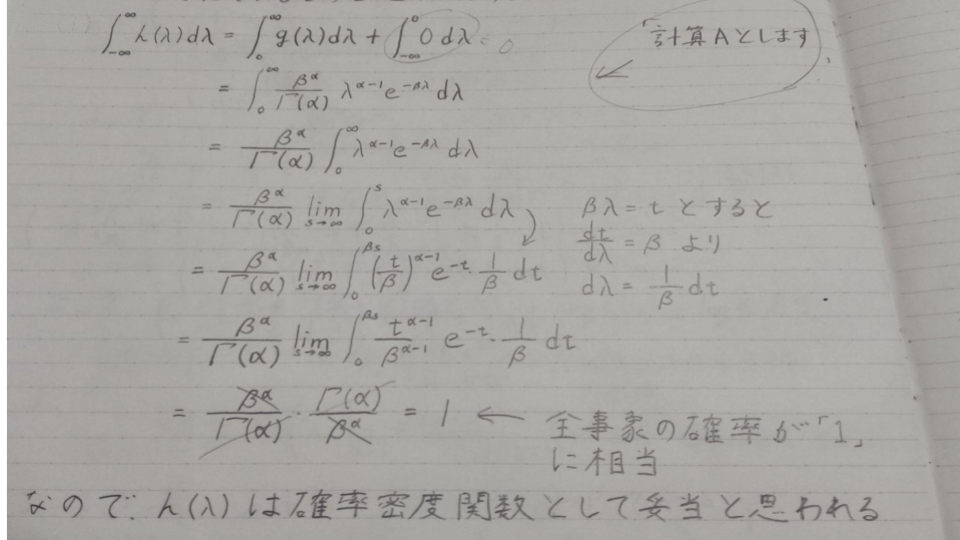 ∫_{-∞}^{∞} h(λ)dλ = ∫_0^∞ g(λ)dλ + ∫_{-∞}^0 0 dλ = 0
「計算Aとします
= ∫_0^∞ β^α/Γ(α) λ^{α-1} e^{-βλ} dλ
= β^α/Γ(α) ∫_0^∞ λ^{α-1} e^{-βλ} dλ
= β^α/Γ(α) lim_{s→∞} ∫_0^s λ^{α-1} e^{-βλ} dλ
βλ = t とすると
dt/dλ = β より
= β^α/Γ(α) lim_{s→∞} ∫_0^{βs} (t/β)^{α-1} e^{-t} 1/β dt
dλ = 1/β dt
= β^α/Γ(α) lim_{s→∞} ∫_0^{βs} t^{α-1}/β^{α-1} e^{-t} · 1/β dt
= β^α/Γ(α) · Γ(α)/β^α = 1 ← 全事象の確率が「1」
に相当
なので、h(λ)は確率密度関数として妥当と思われる